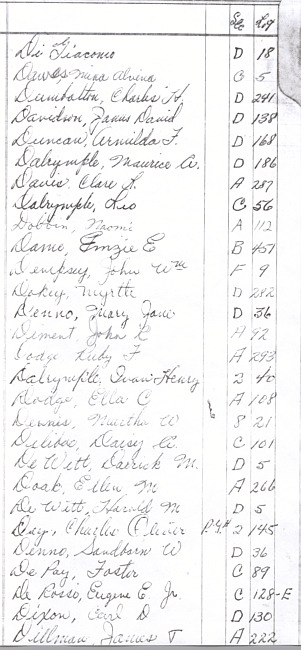 Sec Lot
Di Giacomo D 18
Dawes Mina Alvina C 5
Dumbolton, Charles H. D 241
Davidson, James David D 138
Duncan, Arnilda F. D 168
Dalrymple, Maurice A. D 186
Davis Clare L. A 287
Dalrymple, Leo C 56
Dobbin, Naomi A 112
Dame, Emzie E B 451
Dempsey, John Wm F 9
Dokey, Myrtle D 282
Denno, Mary Jane D 36
Diment, John L A 92
Dodge Ruby F A 293
Dalrymple, Ivan Henry 2 40
Dodge, Ella C A 108
Dennis, Martha W 8 21
Delibac, Daisy A. C 101
De Witt, Derrick M. D 5
Doak, Ellen M A 266
De Witt, Harold M D 5
Day, Charles Oliver 2 145
Denno, Sandborn W D 36
De Pay, Foster C 89
De Rosso, Eugene E Jr. C 128-E
Dixon, Carl D D 130
Dillman, James T A 222